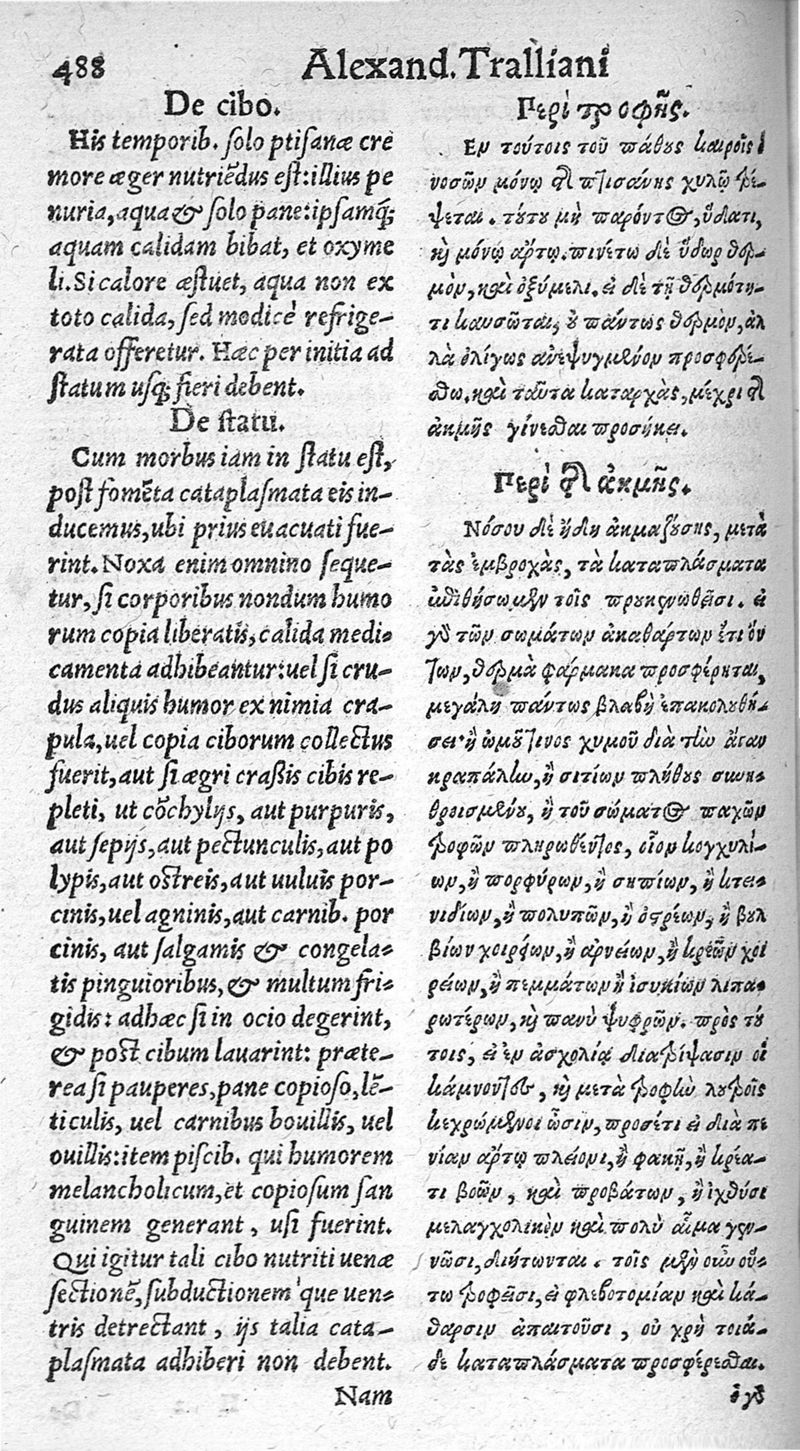 488
Alexand. Tralliani
De cibo.
His temporib. ſolo ptiſanæ cre
more æger nutriēdus eſt: illius pe
nuria, aqua & ſolo pane: ipſamq́;
aquam calidam bibat, et oxyme
li. Si calore æſtuet, aqua non ex
toto calida, ſed modicè refrige-
rata offeretur. Hæc per initia ad
ſtatum uſq; fieri debent.
De ſtatu.
Cum morbus iam in ſtatu eſt,
poſt fomēta cataplaſmata eis in-
ducemus, ubi prius euacuati fue-
rint. Noxa enim omnino ſeque-
tur, ſi corporibus nondum humo
rum copia liberatis, calida medi-
camenta adhibeantur: uel ſi cru-
dus aliquis humor ex nimia cra-
pula, uel copia ciborum collectus
fuerit, aut ſi ægri craſsis cibis re-
pleti, ut cōchylijs, aut purpuris,
aut ſepijs, aut pectunculis, aut po
lypis, aut oſtreis, aut uuluis por-
cinis, uel agninis, aut carnib. por
cinis, aut ſalgamis & congela-
tis pinguioribus, & multum fri-
gidis: adhæc ſi in ocio degerint,
& poſt cibum lauarint: præte-
rea ſi pauperes, pane copioſo, lē-
ticulis, uel carnibus bouillis, uel
ouillis: item piſcib. qui humorem
melancholicum, et copioſum ſan
guinem generant, uſi fuerint.
Qui igitur tali cibo nutriti uenæ
ſectionē, ſubductionem'que uen-
tris detrectant, ijs talia cata-
plaſmata adhiberi non debent.
Nam
Περὶ τροφῆς.
Εν τούτοις τοῦ πάθους καιροῖς ὁ
νοσῶν μόνῳ τῆς πτισάνης χυλῷ τρέ-
ψεται. τούτου μὴ παρόντος, ὕδατι,
καὶ μόνῳ ἄρτῳ. πινέτω δὲ ὕδωρ θερ-
μὸν, καὶ ὀξύμελι. εἰ δὲ τῇ θερμότη-
τι καυσῶται, οὐ πάντως θερμὸν, ἀλ
λὰ ὀλίγως ἀνεψυγμένον προσφερέ-
σθω. καὶ ταῦτα καταρχὰς, μέχρι τῆς
ἀκμῆς γίνεσθαι προσήκει.
Περὶ τῆς ἀκμῆς.
Νόσου δὲ ἤδη ἀκμαζούσης, μετὰ
τὰς ἐμβροχὰς, τὰ καταπλάσματα
ἐπιθήσωμεν τοῖς προκενωθεῖσι. εἰ
γὰρ τῶν σωμάτων ἀκαθάρτων ἔτι ὄν
των, θερμὰ φάρμακα προσφέρηται,
μεγάλη πάντως βλαβὴ ἐπακολουθή-
σει· ἢ ὠμοῦ τινος χυμοῦ διὰ τὴν ἄγαν
κραπάλην, ἢ σιτίων πλῆθος συνη-
θροισμένου, ἢ τοῦ σώματος παχῶν
τροφῶν πληρωθέντος, οἷον κογχυλί-
ων, ἢ πορφύρων, ἢ σηπίων, ἢ κτε-
νιδίων, ἢ πολυπῶν, ἢ ὀστρέων, ἢ βουλ
βίων χοιρείων, ἢ ἀρνείων, ἢ κρεῶν χοι
ρείων, ἢ πεμμάτων ἢ ἰσυκίων λιπα-
ρωτέρων, καὶ πανὺ ψυχρῶν. πρὸς τού
τοις, εἰ ἐν ἀσχολίᾳ διατρίψασιν οἱ
κάμνοντες, καὶ μετὰ τροφὴν λουτροῖς
κεχρώμενοι ὦσιν, προσέτι εἰ διὰ πε
νίαν ἄρτῳ πλέονι, ἢ φακῇ, ἢ κρέα-
τι βοῶν, καὶ προβάτων, ἢ ἰχθύσι
μελαγχολικὸν καὶ πολὺ αἷμα γεν-
νῶσι, διήτωνται. τοῖς μὲν οὖν οὕ-
τω τροφεῖσι, εἰ φλεβοτομίαν καὶ κά-
θαρσιν ἀπαιτοῦσι, οὐ χρὴ τοιά-
δε καταπλάσματα προσφέρεσθαι.
ὁ γὰρ